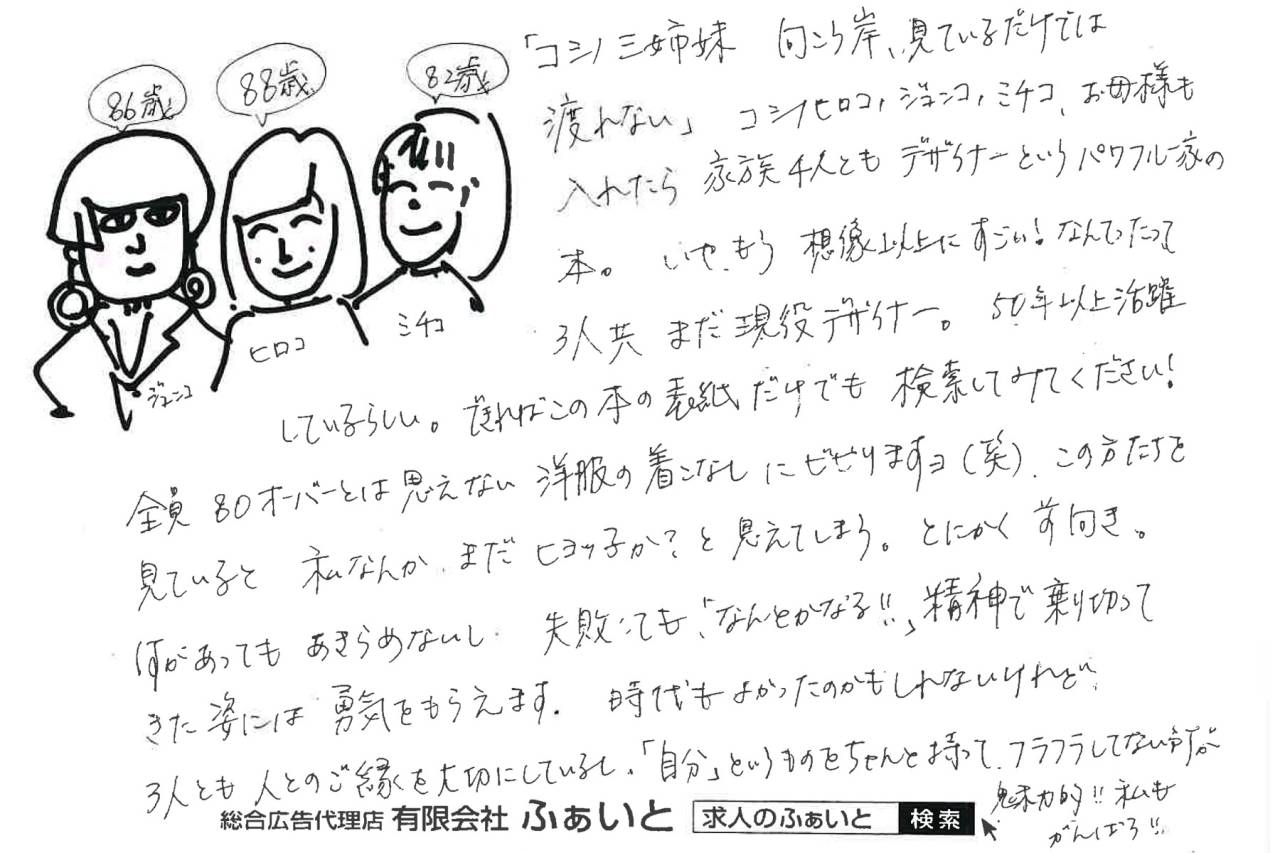 86歳
88歳
82歳
ジュンコ
ヒロコ
ミチコ
「コシノ三姉妹 向こう岸、見ているだけでは
渡れない」 コシノヒロコ, ジュンコ, ミチコ、お母様も
入れたら 家族4人とも デザイナーというパワフル一家の
本。 いや、もう 想像以上に すごい! なんてったって
3人共 まだ 現役デザイナー。 50年以上活躍
しているらしい。 できればこの本の表紙だけでも 検索してみてください!
全員 80オーバーとは思えない 洋服の着こなし にビビりますヨ(笑). この方たちを
見ていると 私なんか、まだ ヒヨッ子か? と思えてしまう。 とにかく 前向き。
何があっても あきらめないし. 失敗しても、「なんとかなる!!」精神で乗り切って
きた姿には 勇気をもらえます. 時代もよかったのかもしれないけれど、
3人とも 人とのご縁を大切にしているし、「自分」というものをちゃんと持って、フラフラしてない所が
魅力的!! 私も
がんばろう!!
総合広告代理店 有限会社 ふぁいと 求人のふぁいと 検索